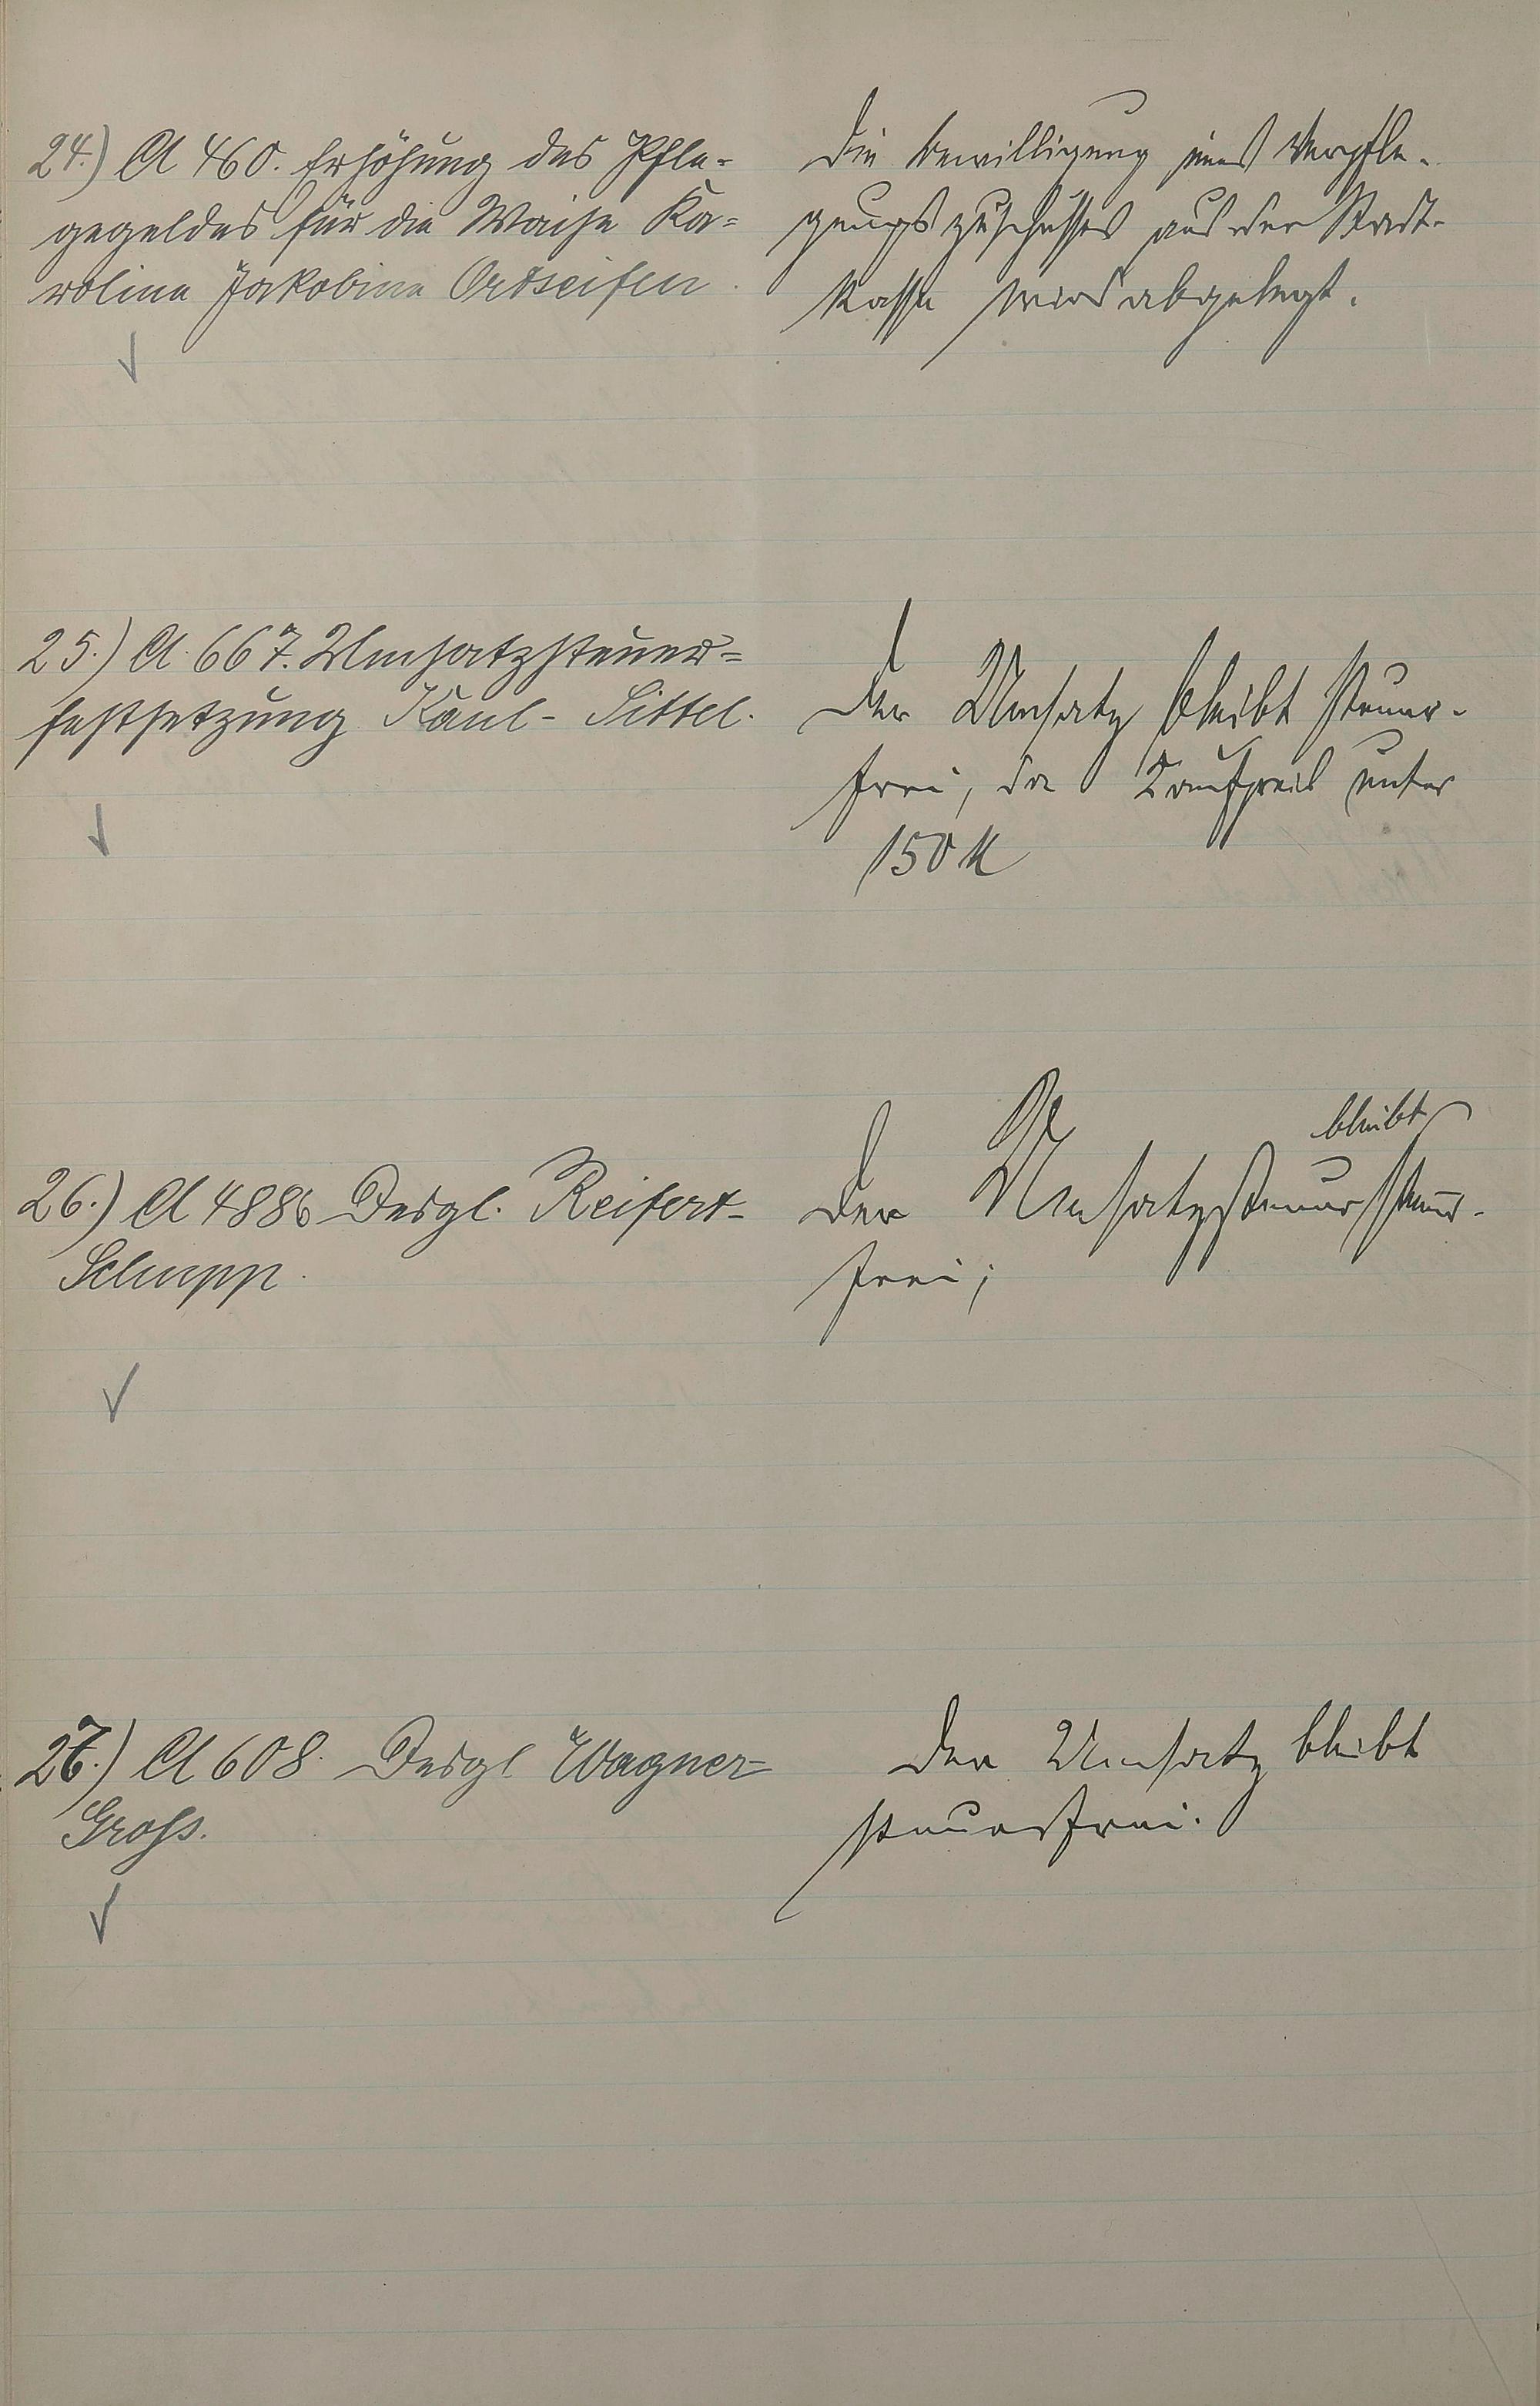 24.) A 460. Erhöhung des Pfle-
gegeldes für die Waise Ka-
rolina Jakobina Ortseifen.
Die Bewilligung eines Verpfle-
gungszuschusses aus der Stadt-
kasse wird abgelegt.
25.) A. 667. Umsatzsteuer-
festsetzung Kaul- Sittel.
Der Umsatz bleibt steuer-
frei, da Kaufpreis unter
150 M
26.) A 4886 Desgl. Reifert-
Schupp.
bleibt
Der Umsatzsteuer steuer-
frei;
27.) A 608. Desgl Wagner-
Gross.
Der Umsatz bleibt
steuerfrei.